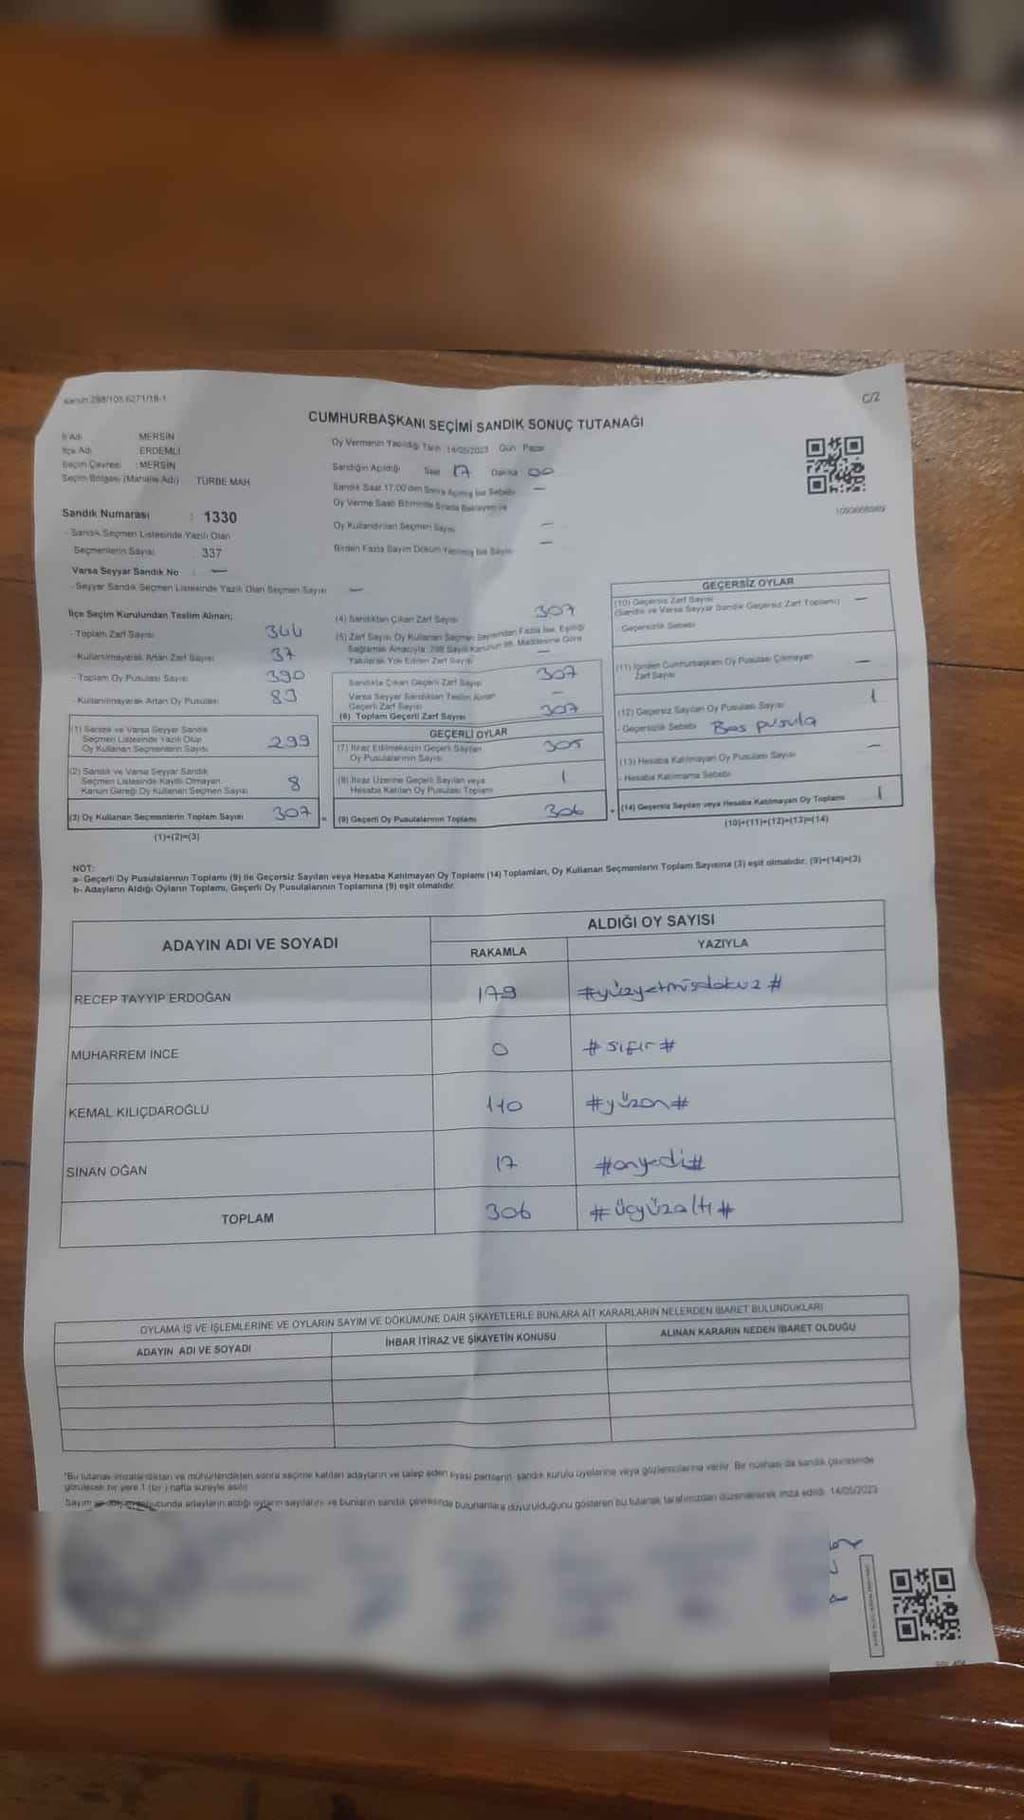 Kanun 298/105.6271/18-1
C/2
CUMHURBAŞKANI SEÇİMİ SANDIK SONUÇ TUTANAĞI
İl Adı MERSİN
İlçe Adı ERDEMLİ
Seçim Çevresi : MERSİN
Seçim Bölgesi (Mahalle Adı) TÜRBE MAH
Sandık Numarası : 1330
- Sandık Seçmen Listesinde Yazılı Olan
Seçmenlerin Sayısı 337
Varsa Seyyar Sandık No : —
- Seyyar Sandık Seçmen Listesinde Yazılı Olan Seçmen Sayısı —
Oy Vermenin Yapıldığı Tarih 14/05/2023 Gün Pazar
Sandığın Açıldığı Saat 17 Dakika 00
Sandık Saat 17:00'den Sonra Açılmış İse Sebebi —
Oy Verme Saati Bitiminde Sırada Bekleyen ve
Oy Kullandırılan Seçmen Sayısı —
Birden Fazla Sayım Döküm Yapılmış İse Sayısı —
İlçe Seçim Kurulundan Teslim Alınan;
- Toplam Zarf Sayısı 344
- Kullanılmayarak Artan Zarf Sayısı 37
- Toplam Oy Pusulası Sayısı 390
- Kullanılmayarak Artan Oy Pusulası 83
(1) Sandık ve Varsa Seyyar Sandık
Seçmen Listesinde Yazılı Olup
Oy Kullanan Seçmenlerin Sayısı 299
(2) Sandık ve Varsa Seyyar Sandık
Seçmen Listesinde Kayıtlı Olmayan
Kanun Gereği Oy Kullanan Seçmen Sayısı 8
(3) Oy Kullanan Seçmenlerin Toplam Sayısı 307
(1)+(2)=(3)
(4) Sandıktan Çıkan Zarf Sayısı 307
(5) Zarf Sayısı Oy Kullanan Seçmen Sayısından Fazla İse, Eşitliği
Sağlamak Amacıyla 298 Sayılı Kanunun 98. Maddesine Göre
Yakılarak Yok Edilen Zarf Sayısı —
Sandıkta Çıkan Geçerli Zarf Sayısı 307
Varsa Seyyar Sandıktan Teslim Alınan
Geçerli Zarf Sayısı —
(6) Toplam Geçerli Zarf Sayısı 307
GEÇERLİ OYLAR
(7) İtiraz Edilmeksizin Geçerli Sayılan
Oy Pusulalarının Sayısı 305
(8) İtiraz Üzerine Geçerli Sayılan veya
Hesaba Katılan Oy Pusulası Toplamı 1
(9) Geçerli Oy Pusulalarının Toplamı 306
GEÇERSİZ OYLAR
(10) Geçersiz Zarf Sayısı —
(Sandık ve Varsa Seyyar Sandık Geçersiz Zarf Toplamı)
- Geçersizlik Sebebi
(11) İçinden Cumhurbaşkanı Oy Pusulası Çıkmayan
Zarf Sayısı —
(12) Geçersiz Sayılan Oy Pusulası Sayısı 1
- Geçersizlik Sebebi Boş pusula
(13) Hesaba Katılmayan Oy Pusulası Sayısı —
- Hesaba Katılmama Sebebi
(14) Geçersiz Sayılan veya Hesaba Katılmayan Oy Toplamı 1
(10)+(11)+(12)+(13)=(14)
NOT:
a- Geçerli Oy Pusulalarının Toplamı (9) ile Geçersiz Sayılan veya Hesaba Katılmayan Oy Toplamı (14) Toplamları, Oy Kullanan Seçmenlerin Toplam Sayısına (3) eşit olmalıdır. (9)+(14)=(3)
b- Adayların Aldığı Oyların Toplamı, Geçerli Oy Pusulalarının Toplamına (9) eşit olmalıdır.
ADAYIN ADI VE SOYADI
ALDIĞI OY SAYISI
RAKAMLA YAZIYLA
RECEP TAYYİP ERDOĞAN 179 #yüzyetmişdokuz#
MUHARREM İNCE 0 #sıfır#
KEMAL KILIÇDAROĞLU 110 #yüzon#
SİNAN OĞAN 17 #onyedi#
TOPLAM 306 #üçyüzaltı#
OYLAMA İŞ VE İŞLEMLERİNE VE OYLARIN SAYIM VE DÖKÜMÜNE DAİR ŞİKAYETLERLE BUNLARA AİT KARARLARIN NELERDEN İBARET BULUNDUKLARI
ADAYIN ADI VE SOYADI İHBAR İTİRAZ VE ŞİKAYETİN KONUSU ALINAN KARARIN NEDEN İBARET OLDUĞU
*Bu tutanak imzalandıktan ve mühürlendikten sonra seçime katılan adayların ve talep eden siyasi partilerin sandık kurulu üyelerine veya gözlemcilerine verilir. Bir nüshası da sandık çevresinde
görülecek bir yere 1 (bir) hafta süreyle asılır.
Sayım adayların aldığı oyların sayılarını ve bunların sandık çevresinde bulunanlara duyurulduğunu gösteren bu tutanak tarafımızdan düzenlenerek imza edildi. 14/05/2023